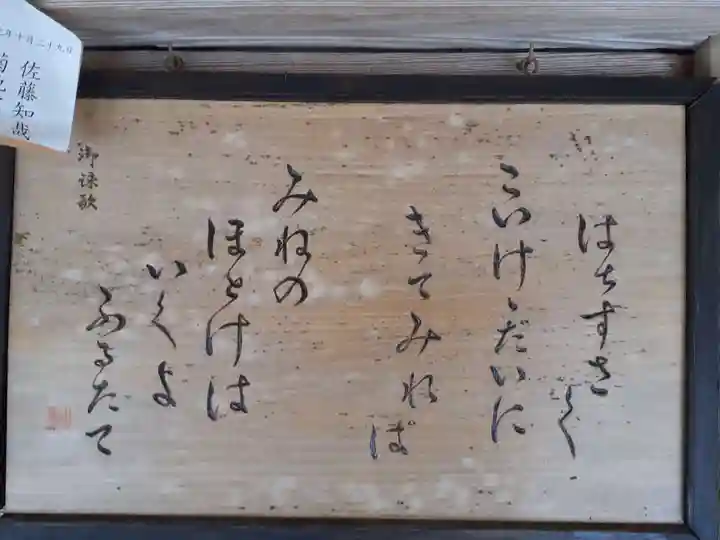 はちすさく
こいけゞだいに
きてみれば
みねの
ほとけは
いくよ
ふるたて
御詠歌
年十月二十九日
佐藤知哉